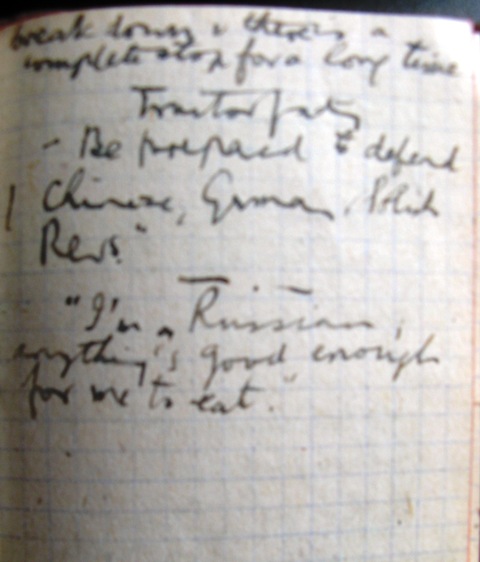 break down & there is a
complete stop for a long time
Tractor fact
- Be prepared to defend
Chinese, German, Polish
Revs."
"I'm a Russian,
anything's good enough
for me to eat."